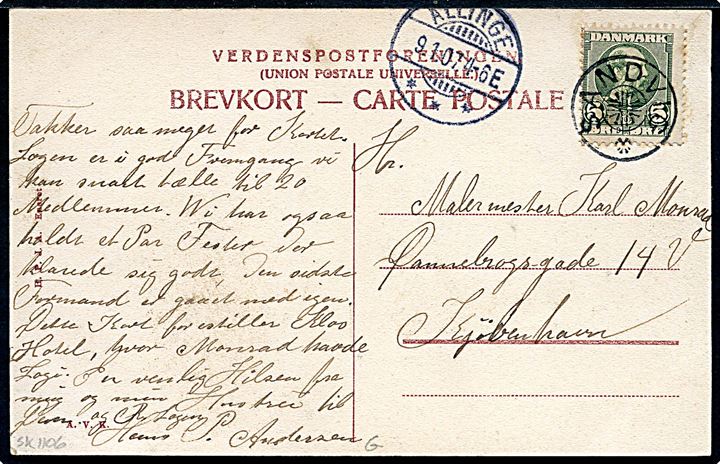 VERDENSPOSTFORENINGEN
(UNION POSTALE UNIVERSELLE)
BREVKORT — CARTE POSTALE
ALLINGE
9.1.07. 4-5 E
DANMARK
5 ØRE 5
SANDVIG
Takker saa meget for Kortet.
Logen er i god Fremgang vi
kan snart tælle til 20
Medlemmer. Vi har ogsaa
holdt et Par Fester der
klarede sig godt. Den sidste
Formand er gaaet med igen.
Dette Kort forestiller
Hotel, hvor Monrad havde
Logi. En venlig Hilsen fra
mig og min Hustru til
Dem og Logen
Hans P. Andersen
Hr.
Malermester Karl Monrad
Dannebrogsgade 14 V
Kjøbenhavn
A. V. K.
SK1106
G